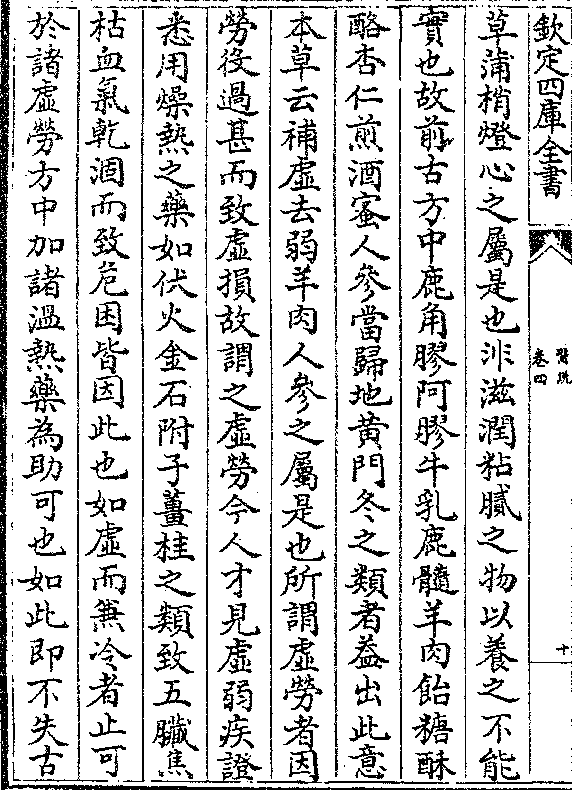 欽定四庫全書
醫說
卷四
十
草蒲梢燈心之屬是也非滋潤粘膩之物以養之不能
實也故前古方中鹿角膠阿膠牛乳鹿髓羊肉飴糖酥
酪杏仁煎酒蜜人參當歸地黄門冬之類者葢出此意
本草云補虛去弱羊肉人參之屬是也所謂虛勞者因
勞役過甚而致虛損故謂之虛勞今人才見虛弱疾證
悉用燥熱之藥如伏火金石附子薑桂之類致五臟焦
枯血氣乾涸而致危困皆因此也如虛而兼冷者止可
於諸虛勞方中加諸溫熱藥為助可也如此即不失古